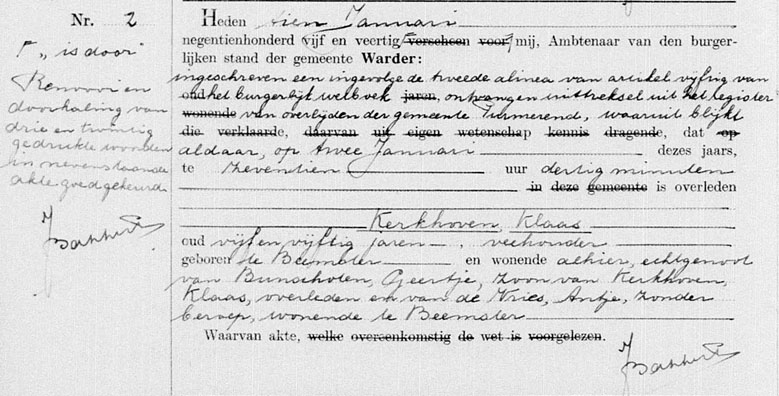 Nr. 2
"is door"
Renvooi en
doorhaling van
drie en twintig
gedrukte woorden
in nevenstaande
akte goedgekeurd.
J Bakker
Heden tien Januari
negentienhonderd vijf en veertig verscheen voor mij, Ambtenaar van den burger-
lijken stand der gemeente Warder:
ingeschreven een ingevolge de tweede alinea van artikel vijftig van
oud het burgerlijk wetboek jaren, ontvangen uittreksel uit het register
wonende van overlijden der gemeente Purmerend, waaruit blijkt
die verklaarde, daarvan uit eigen wetenschap kennis dragende, dat op
aldaar, op twee Januari dezes jaars,
te zeventien uur dertig minuten
in deze gemeente is overleden
Kerkhoven, Klaas
oud vijf en vijftig jaren, veehouder
geboren te Beemster en wonende alhier, echtgenoot
van Bunschoten, Geertje, zoon van Kerkhoven,
Klaas, overleden en van de Vries, Antje, zonder
beroep, wonende te Beemster
Waarvan akte, welke overeenkomstig de wet is voorgelezen.